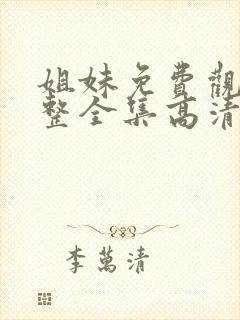 姐妹免費觀
整全集高清
李萬清